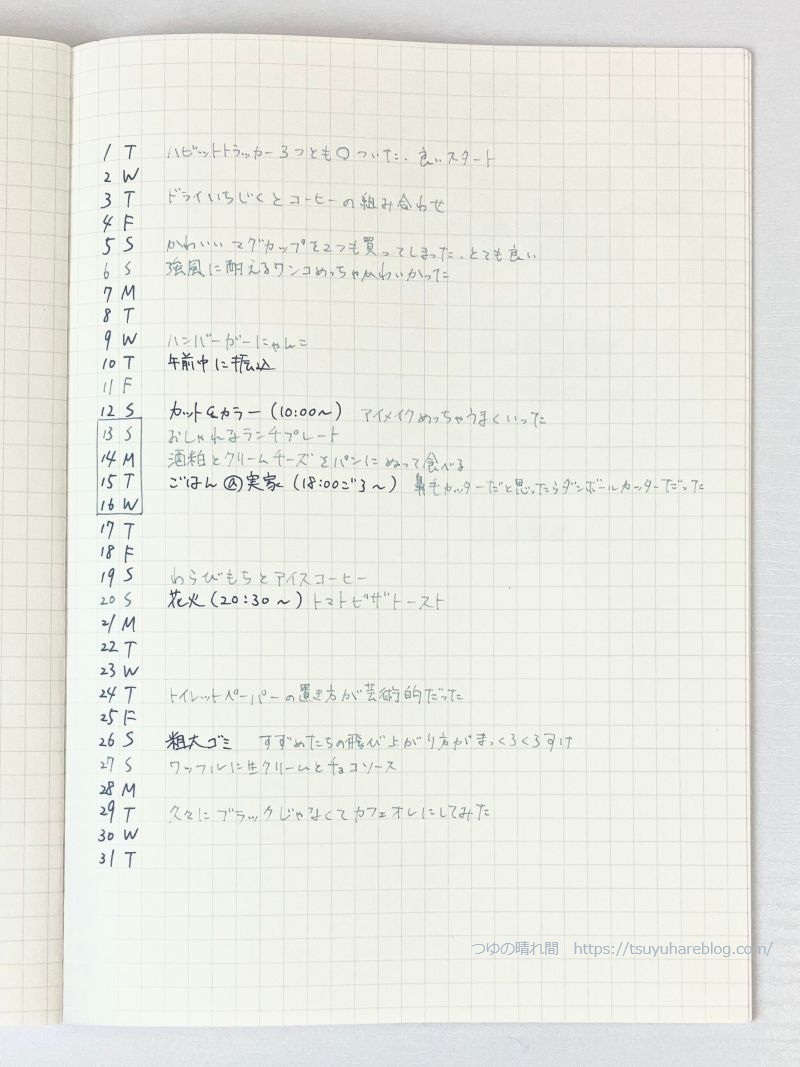 1 T ハビットトラッカー3つとも○ついた．良いスタート
2 W
3 T ドライいちじくとコーヒーの組み合わせ
4 F
5 S かわいいマグカップを2つも買ってしまった．とても良い
6 S 強風に耐えるワンコめっちゃかわいかった
7 M
8 T
9 W ハンバーガーにゃんこ
10 T 午前中に振込
11 F
12 S カット&カラー(10:00〜) アイメイクめっちゃうまくいった
13 S おしゃれなランチプレート
14 M 酒粕とクリームチーズをパンにぬって食べる
15 T ごはん@実家(18:00ごろ〜) 鼻毛カッターだと思ったらダンボールカッターだった
16 W
17 T
18 F
19 S わらびもちとアイスコーヒー
20 S 花火(20:30〜)トマトピザトースト
21 M
22 T
23 W
24 T トイレットペーパーの置き方が芸術的だった
25 F
26 S 粗大ゴミ すずめたちの飛び上がり方がまっくろくろすけ
27 S ワッフルに生クリームとチョコソース
28 M
29 T 久々にブラックじゃなくてカフェオレにしてみた
30 W
31 T
つゆの晴れ間 https://tsuyuhareblog.com/